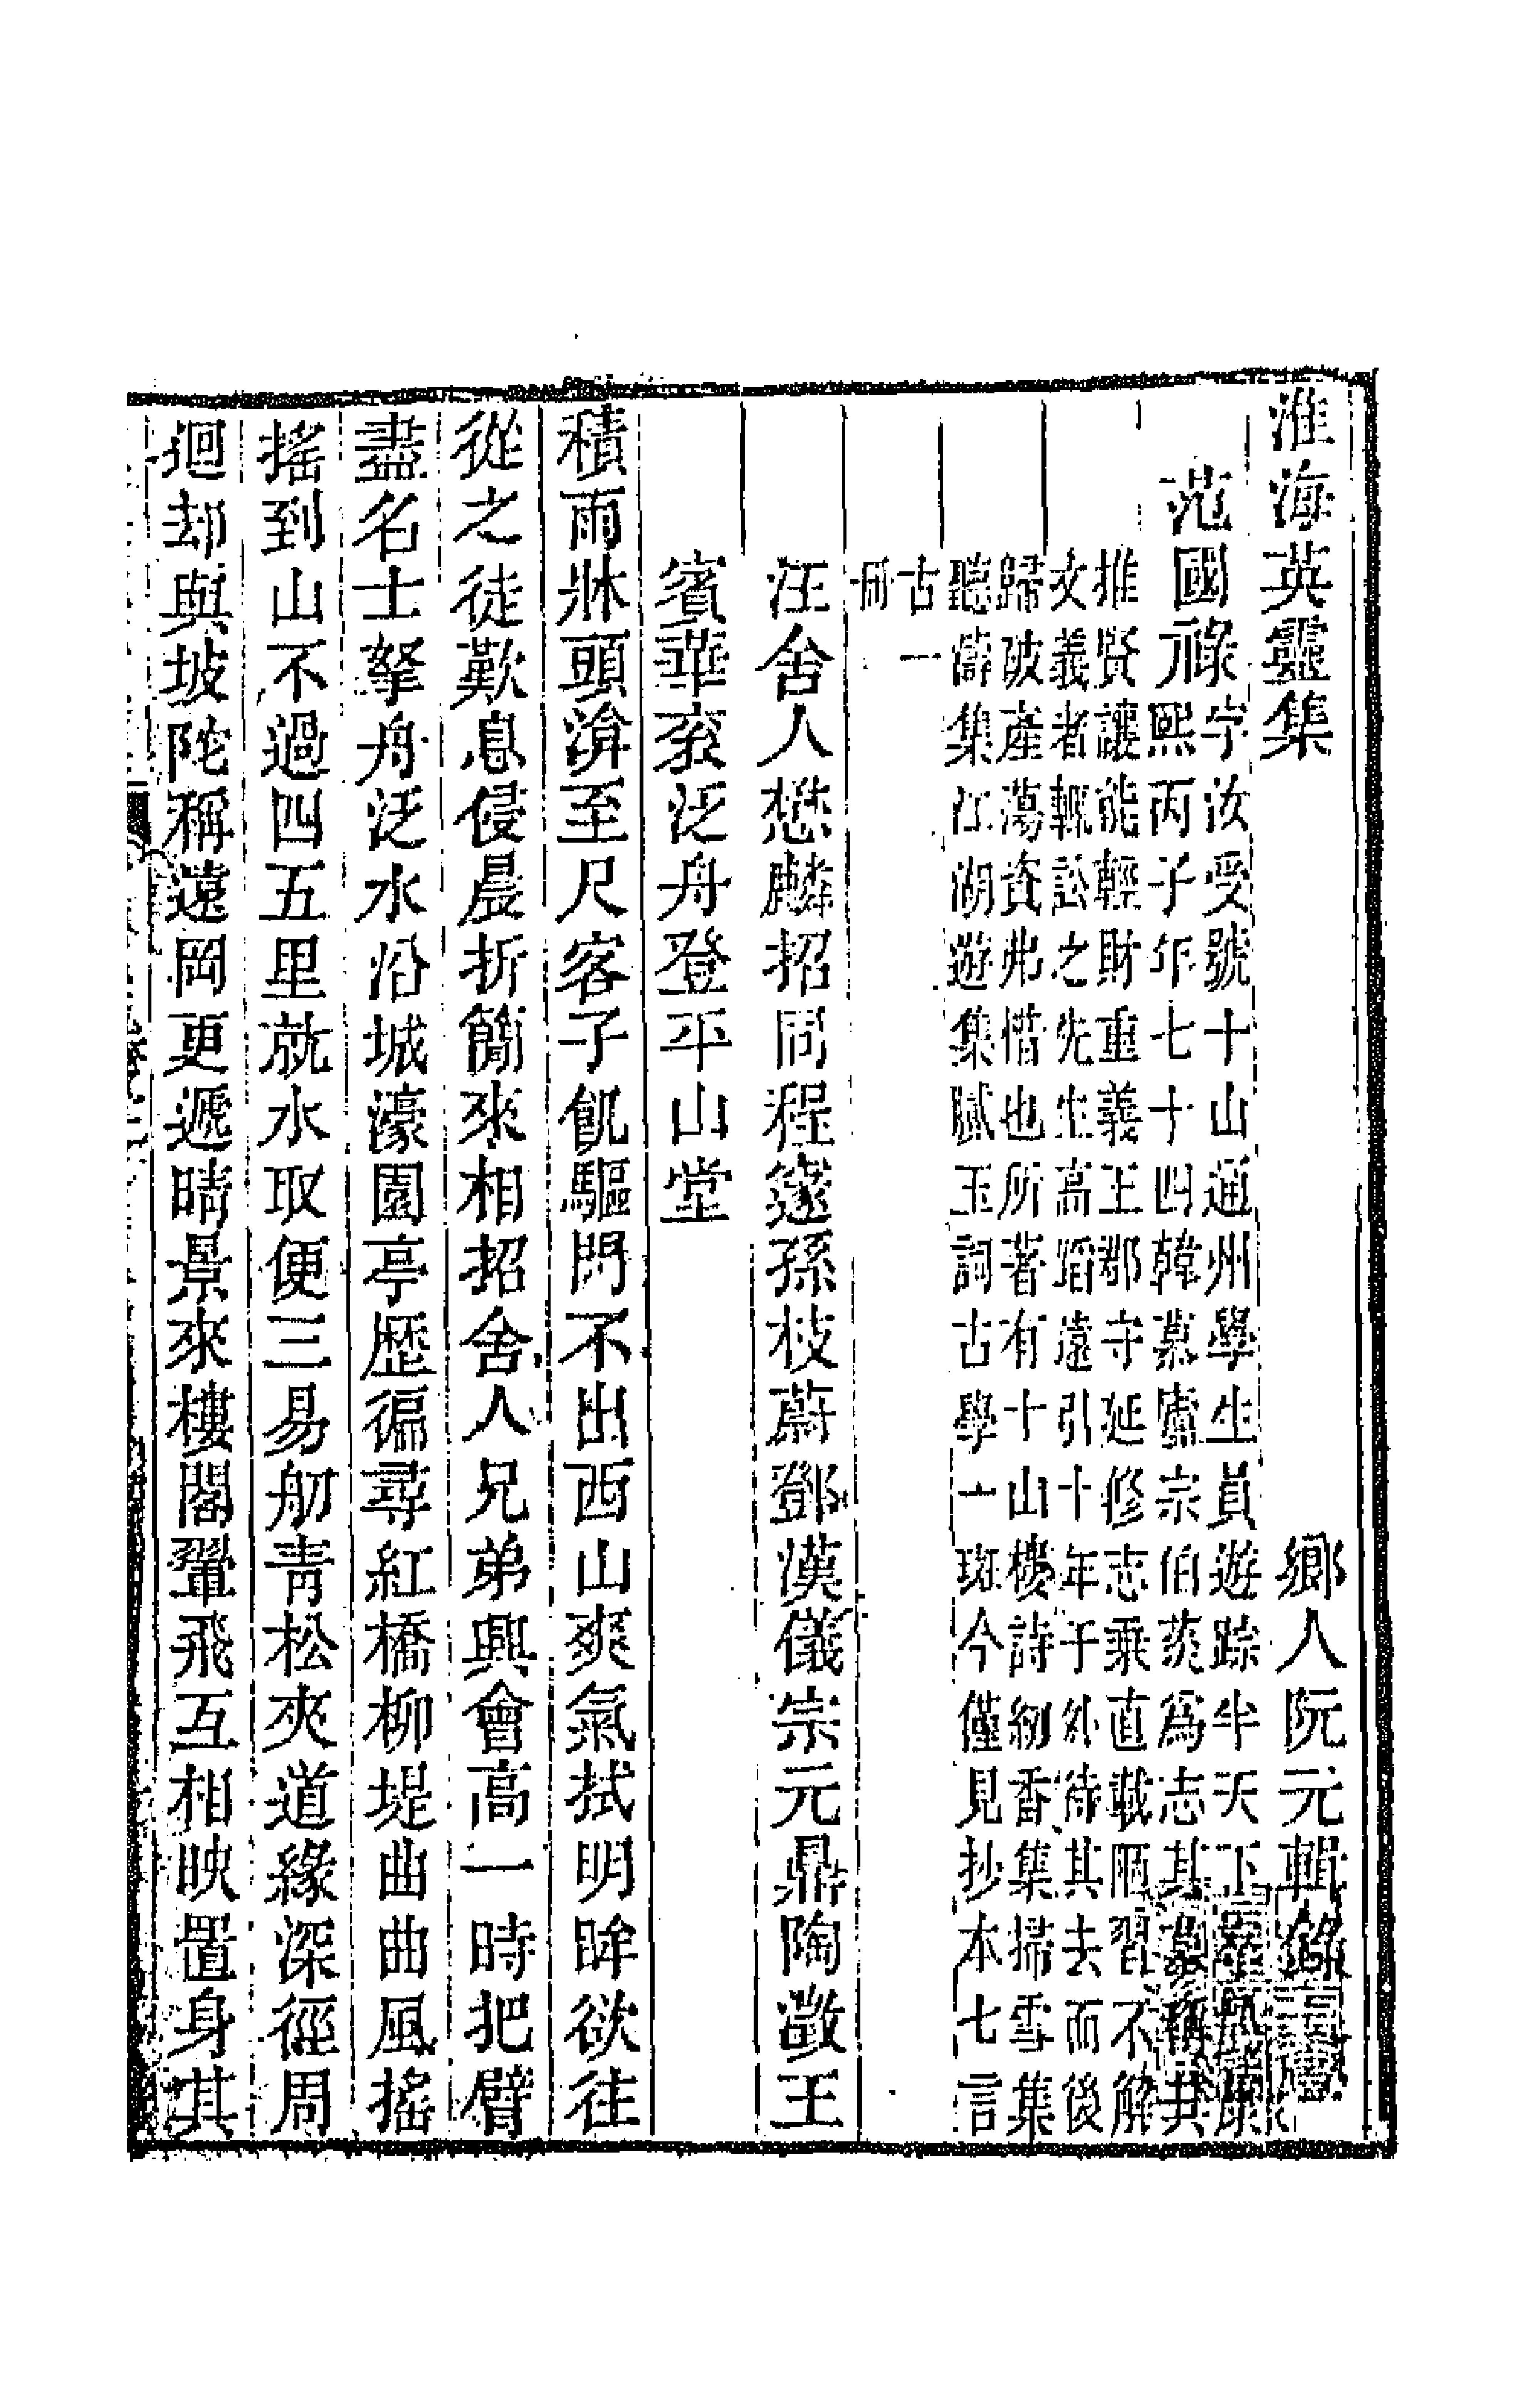 淮海英靈集
鄉人阮元輯錄
范國祿
字汝受號十山通州學生員遊踪半天下卒於康
熙丙子年七十四韓慕廬宗伯菼爲志其墓稱其
推賢讓能輕財重義王郡守延修志乘直載陋習不解
文義者輒訟之先生高蹈遠引十年于外待其去而後
歸破產蕩資弗惜也所著有十山樓詩紉香集掃雪集
聽濤集江湖遊集賦玉詞古學一斑今僅見抄本七言
古一
冊
汪舍人懋麟招同程邃孫枝蔚鄧漢儀宗元鼎陶澂王
賓華袞泛舟登平山堂
積雨牀頭渰至尺客子飢驅門不出西山爽氣拭明眸欲往
從之徒歎息侵晨折簡來相招舍人兄弟興會高一時把臂
盡名士拏舟泛水沿城濠園亭歷徧尋紅橋柳堤曲曲風搖
搖到山不過四五里就水取便三易舠青松夾道緣深徑周
迴却與坡陀稱遠岡更遞晴景來樓閣翬飛互相映置身其